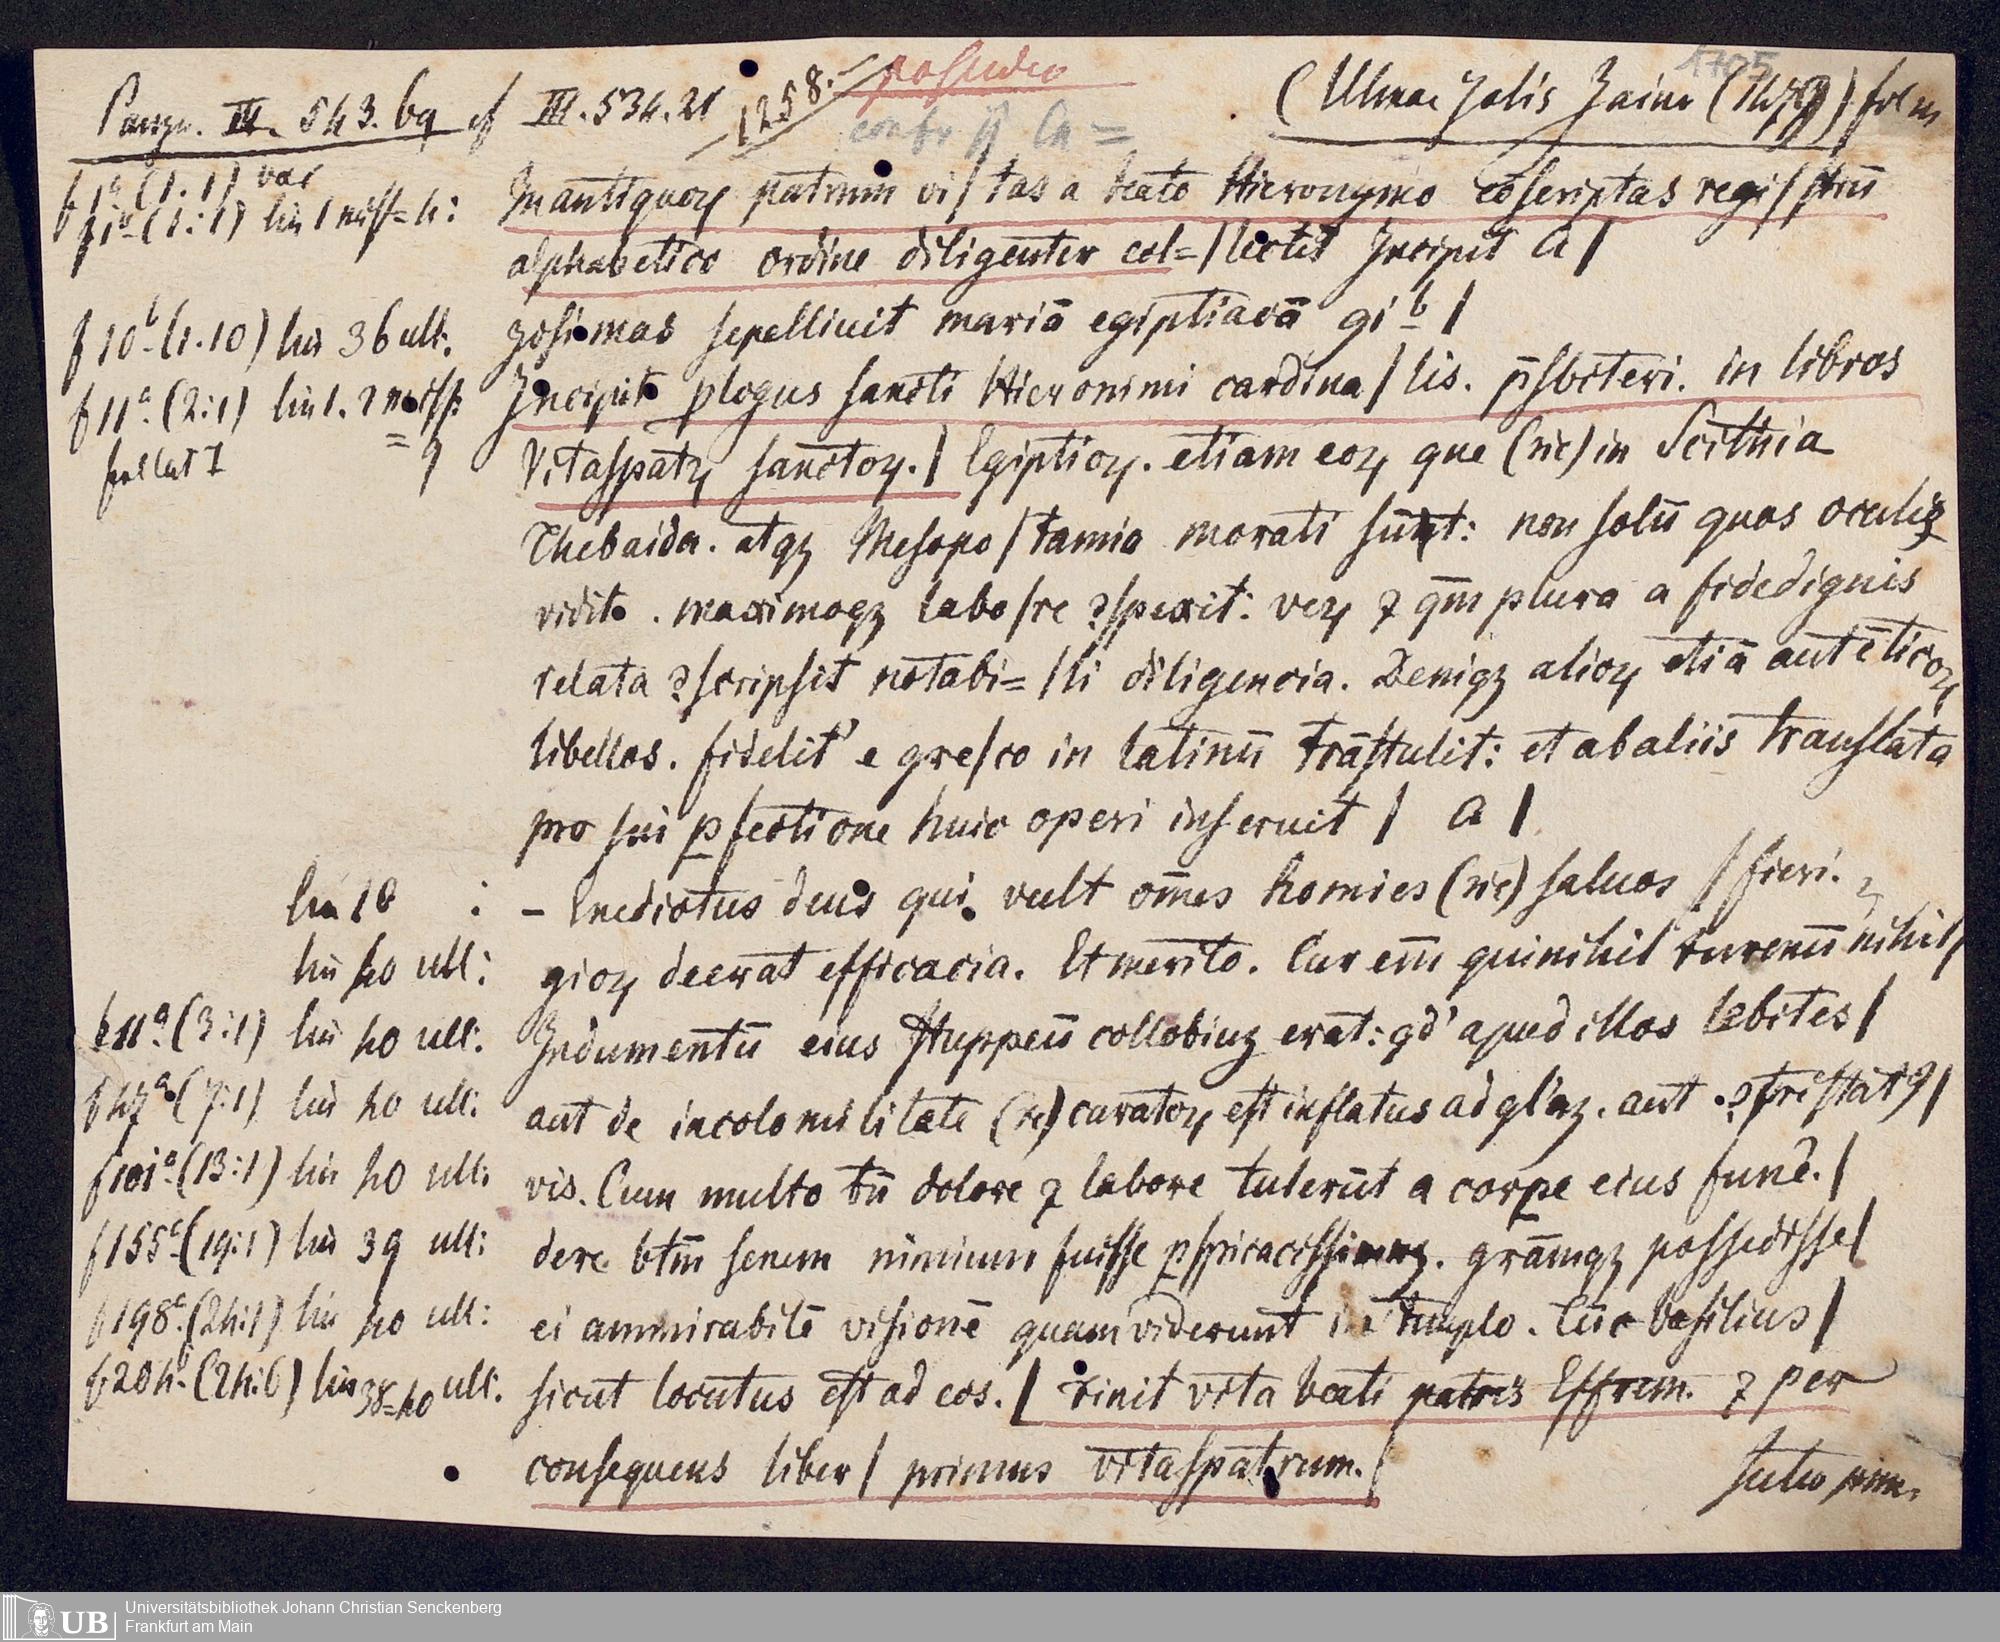 Panzr. III. 543. 69 cf III. 534. 21
1258.
possideo
1705
(Ulmae Joh's Zainr (1473) fol m
f 1a (1.1) vac
f 1b (1:1) lin 1 miss = h:
In antiquoꝝ patrum vi/tas a beato Hieronymo cōscriptas regi/strū
alphabetico ordine diligenter col=/lectū Incipit A/
f 10b (1.10) lin 36 ult.
zosimas sepelliuit mariā egiptiacā gi b /
f 11a (2:1) lin 1. 2 miss
Incipit plogus sancti Hieronimi cardina/lis. p̄sbiteri. in libros
Vitaspatꝝ sanctoꝝ. / Egiptioꝝ. etiam eoꝝ que (sic) in Scithia
Thebaida. atqꝫ Mesopo/tamia morati sūt: non solū quos oculis
vidit. maximoqꝫ labo/re ꝯspexit: veꝝ ⁊ qm̄ plura a fidedignis
relata ꝯscripsit notabi=/li diligencia. Deniqꝫ alioꝝ etiā autēticoꝝ
libellos. fidelit' e gre/co in latinū trāstulit: et ab aliis translata
pro sui ꝑfectione huic operi inseruit / A /
lin 10 : – Enedictus deus qui vult om̄es homies (sic) saluos / fieri.
lin 40 ult: gioꝝ deerat efficacia. Et merito. Cur em̄ qui nihil nihil/
(3:1) lin 40 ult. Indumentū eius stuppeū collobiuꝫ erat: qd' apud illos lebites /
f 47a (7:1) lin 40 ult. aut de incolomilitate (sic) curatoꝝ est inflatus ad gl'az. aut ꝯtristatꝰ /
f 101a (13:1) lin 40 ult. vis. Cum multo tn̄ dolore ⁊ labore tulerūt a corpe eius funē. /
f 155a (19:1) lin 39 ult: dere btm̄ senem nimium fuisse ꝑspicacissimuꝫ. grāmqꝫ possedisse /
f 198a (24:1) lin 40 ult: ei ammirabilē visionē quam viderunt in templo. Tūc basilius /
(24:6) lin 38=40 ult. sicut locutus est ad eos. / Finit vita beati patris Effrem. ⁊ per
consequens liber / primus vitaspatrum. /
UB
Universitätsbibliothek Johann Christian Senckenberg
Frankfurt am Main